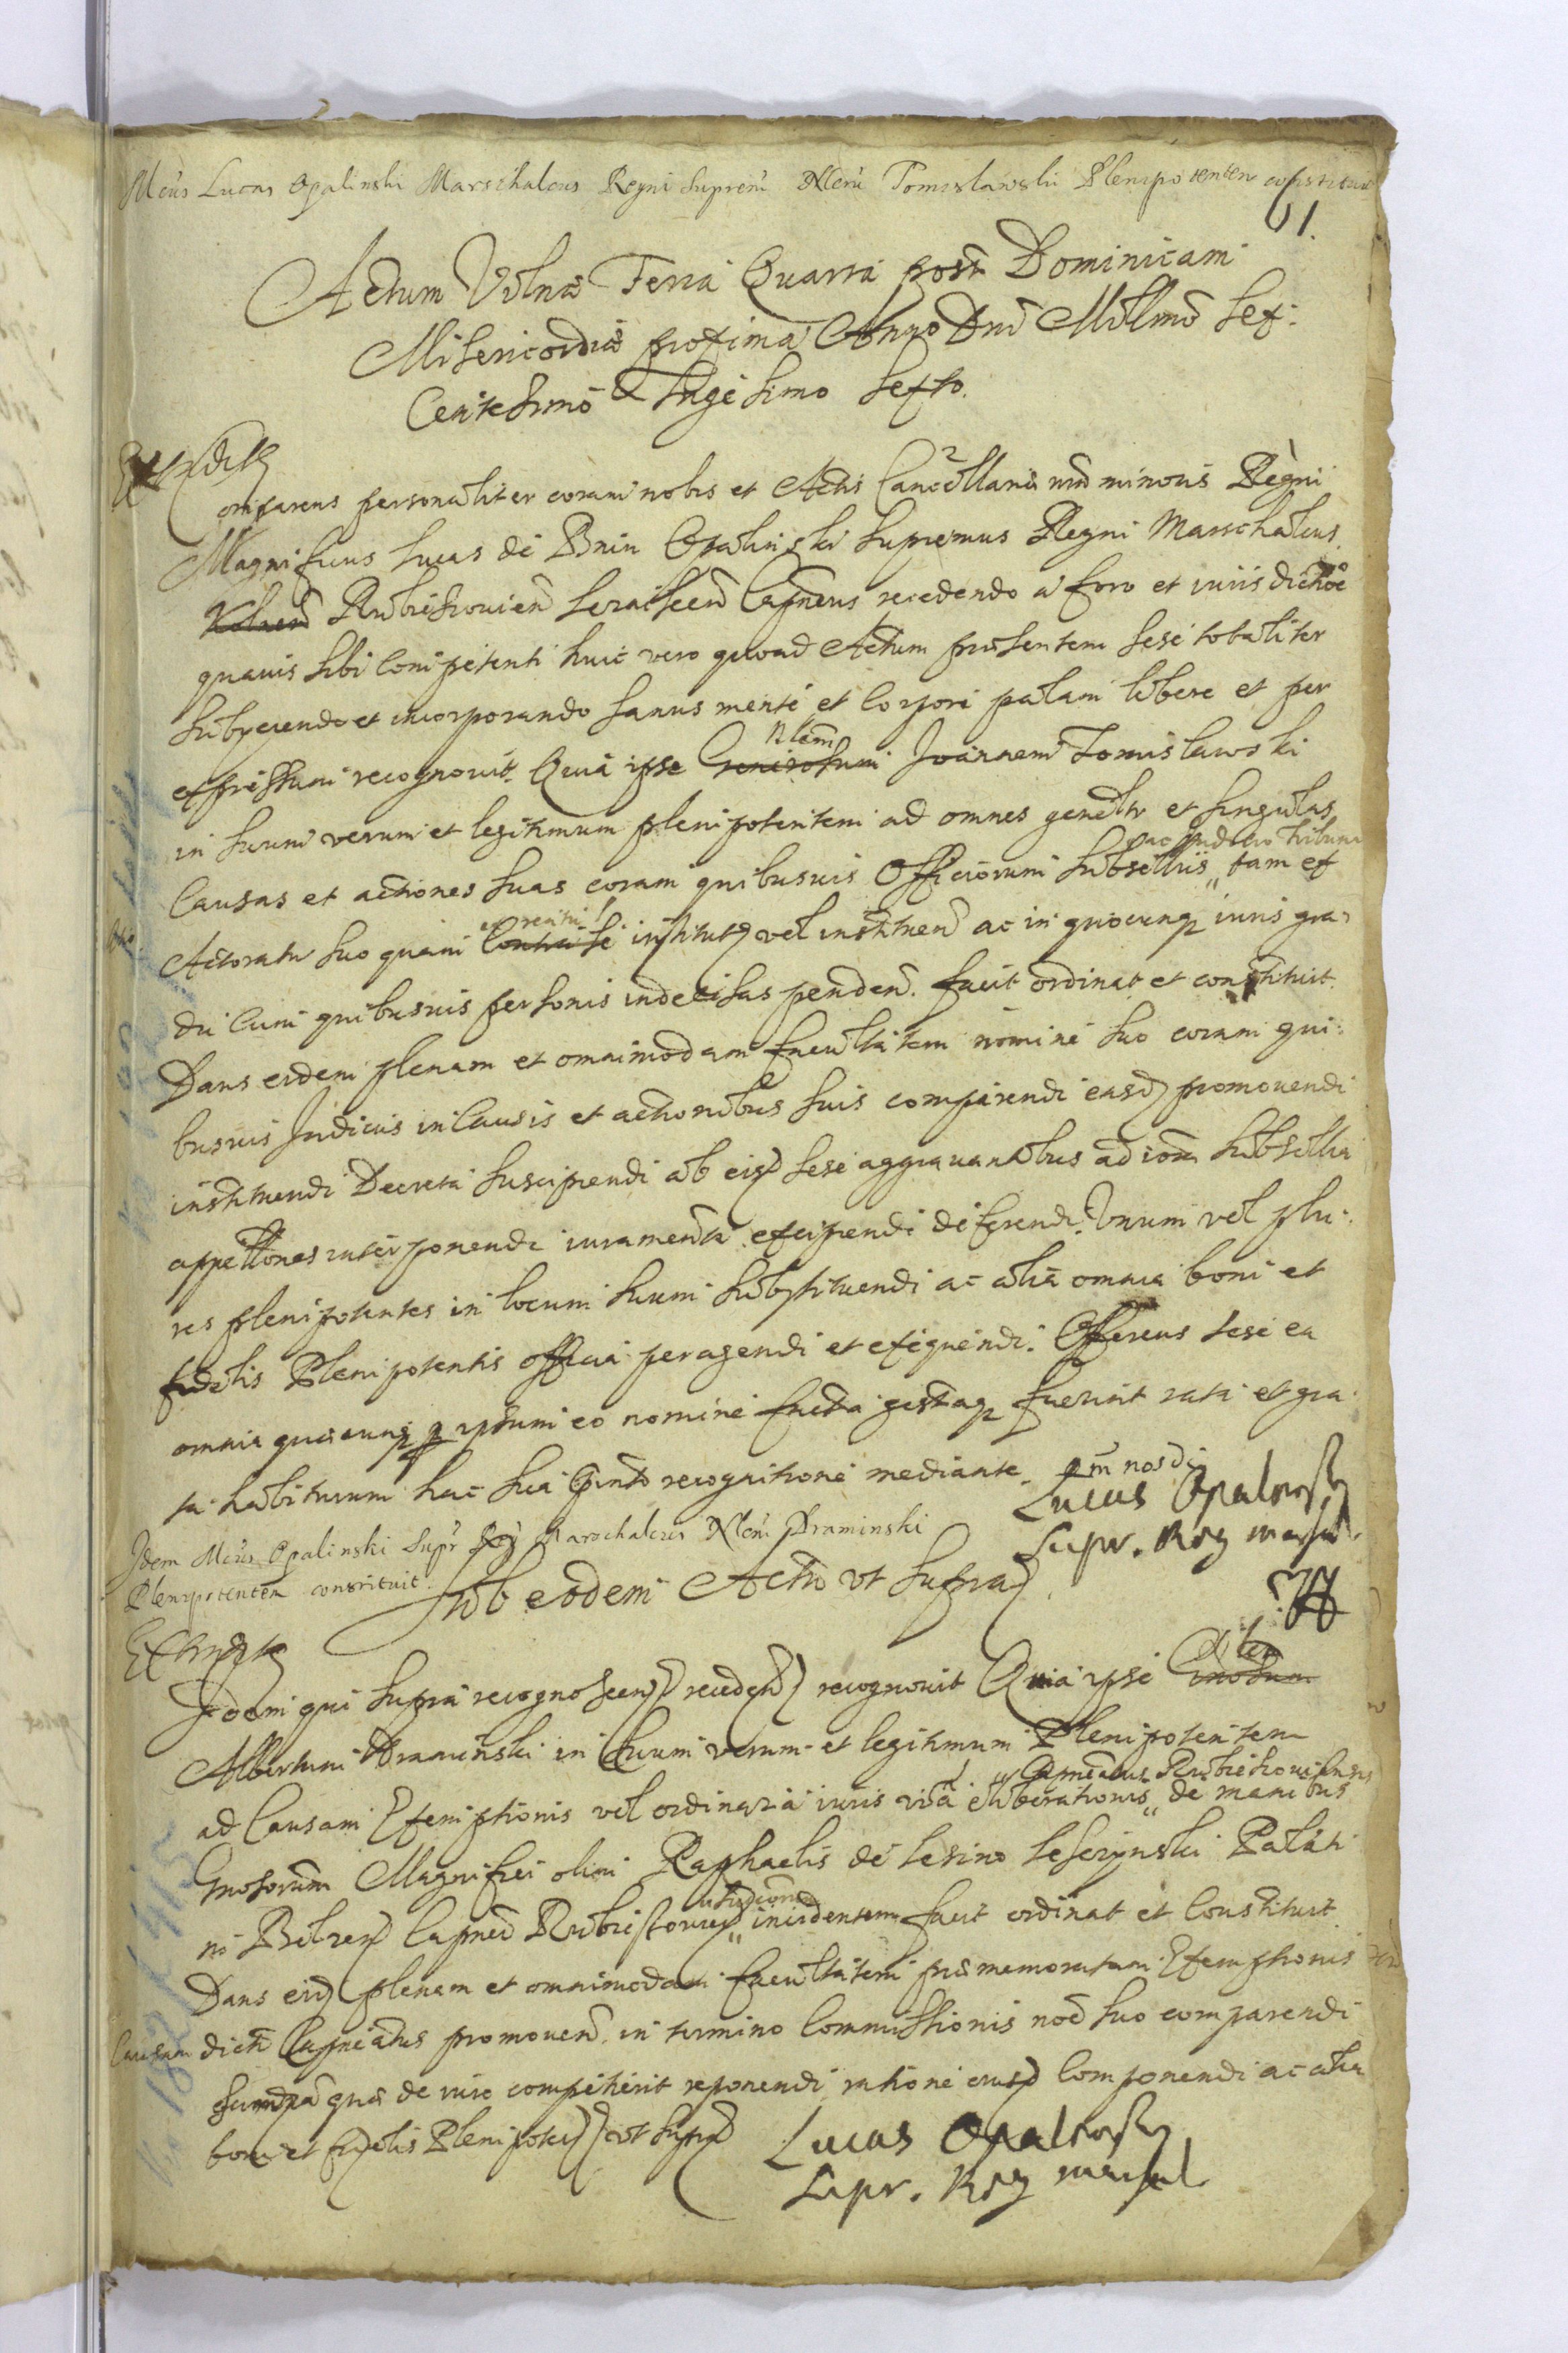 Mcus Lucas Opalinski Marschalcus Regni Supremus Nlem Tomislawski Plenipotentem constituit
61.
Actum Vilnae Feria Quarta post Dominicam
Misericordiae proxima Anno Dni Millmo Sex-
centesimo Trigesimo Sexto.
Extraditum
Comparens personaliter coram nobis et Actis Cancellariae nrae minoris Regni
Magnificus Lucas de Bnin Opalinski Supremus Regni Marschalcus
Rubieszovien Leraiscen Capneus recedendo a foro et iurisdictione
quauis sibi competenti huic vero quoad Actum praesentem sese totaliter
subyciendo et incorporando sanus mente et corpore palam libere et per
expressum recognouit. Quia ipse Generosum Nlem Joannem Tomislawski
in suum verum et legitimum plenipotentem ad omnes genelr et singulas
ac Judicio Tribun
Causas et actiones suas coram quibusuis Officiorum subselliis tam ex
ex reatu
Actoratu suo quam contra se institut vel instituen ac in quocunq iuris gra-
du cum quibusuis personis indecisas penden. facit ordinat et constituit.
Dans eidem plenam et omnimodam facultatem nomine suo coram qui-
busuis Judiciis in Causis et actionibus suis comparendi easd promouendi
instituendi Decreta suscipiendi ab eisd sese aggrauantibus ad iom subsellia
appellones interponendi iuramenta excipiendi deferendi. Unum vel plu-
res plenipotentes in locum suum substituendi ac alia omnia boni et
fidelis Plenipotentis officia peragendi et exequendi. Offerens sese ea
omnia quaecunq p ipsum eo nomine facta gestaq fuerint rata et gra-
ta habiturum hac sua pnti recognitione mediante.
Lucas Opalinsky
Supr. Reg marsal.
Idem Mcus Opalinski Supr Reg Marschalcus Nlem Draminski
Plenipotentem constituit.
Sub eodem Actu vt supra
Extraditum
Idem qui supra recognoscens recedens recognouit Quia ipse Gnosum Nlem
Albertum Draminski in suum verum et legitimum Plenipotentem
Capneatus Rubieszouiensis
ad Causam Exemptionis vel ordinaria iuris via eliberationis de manibus
Gnosorum Magnifici olim Raphaelis de Leszno Lesczynski Palati
ni Belzen Capnei Rubieszouien incidentem facit ordinat et constituit.
Dans eid plenam et omnimodam facultatem praememoratam Exemptionis
Causam dicti Capneatus promouen in termino Commissionis noe suo comparendi
summam quae de iure competierit reponendi ratione eiusd componendi ac alia
boni et fidelis Plenipoten vt supra
Lucas Opalinsky
Supr. Reg marsal